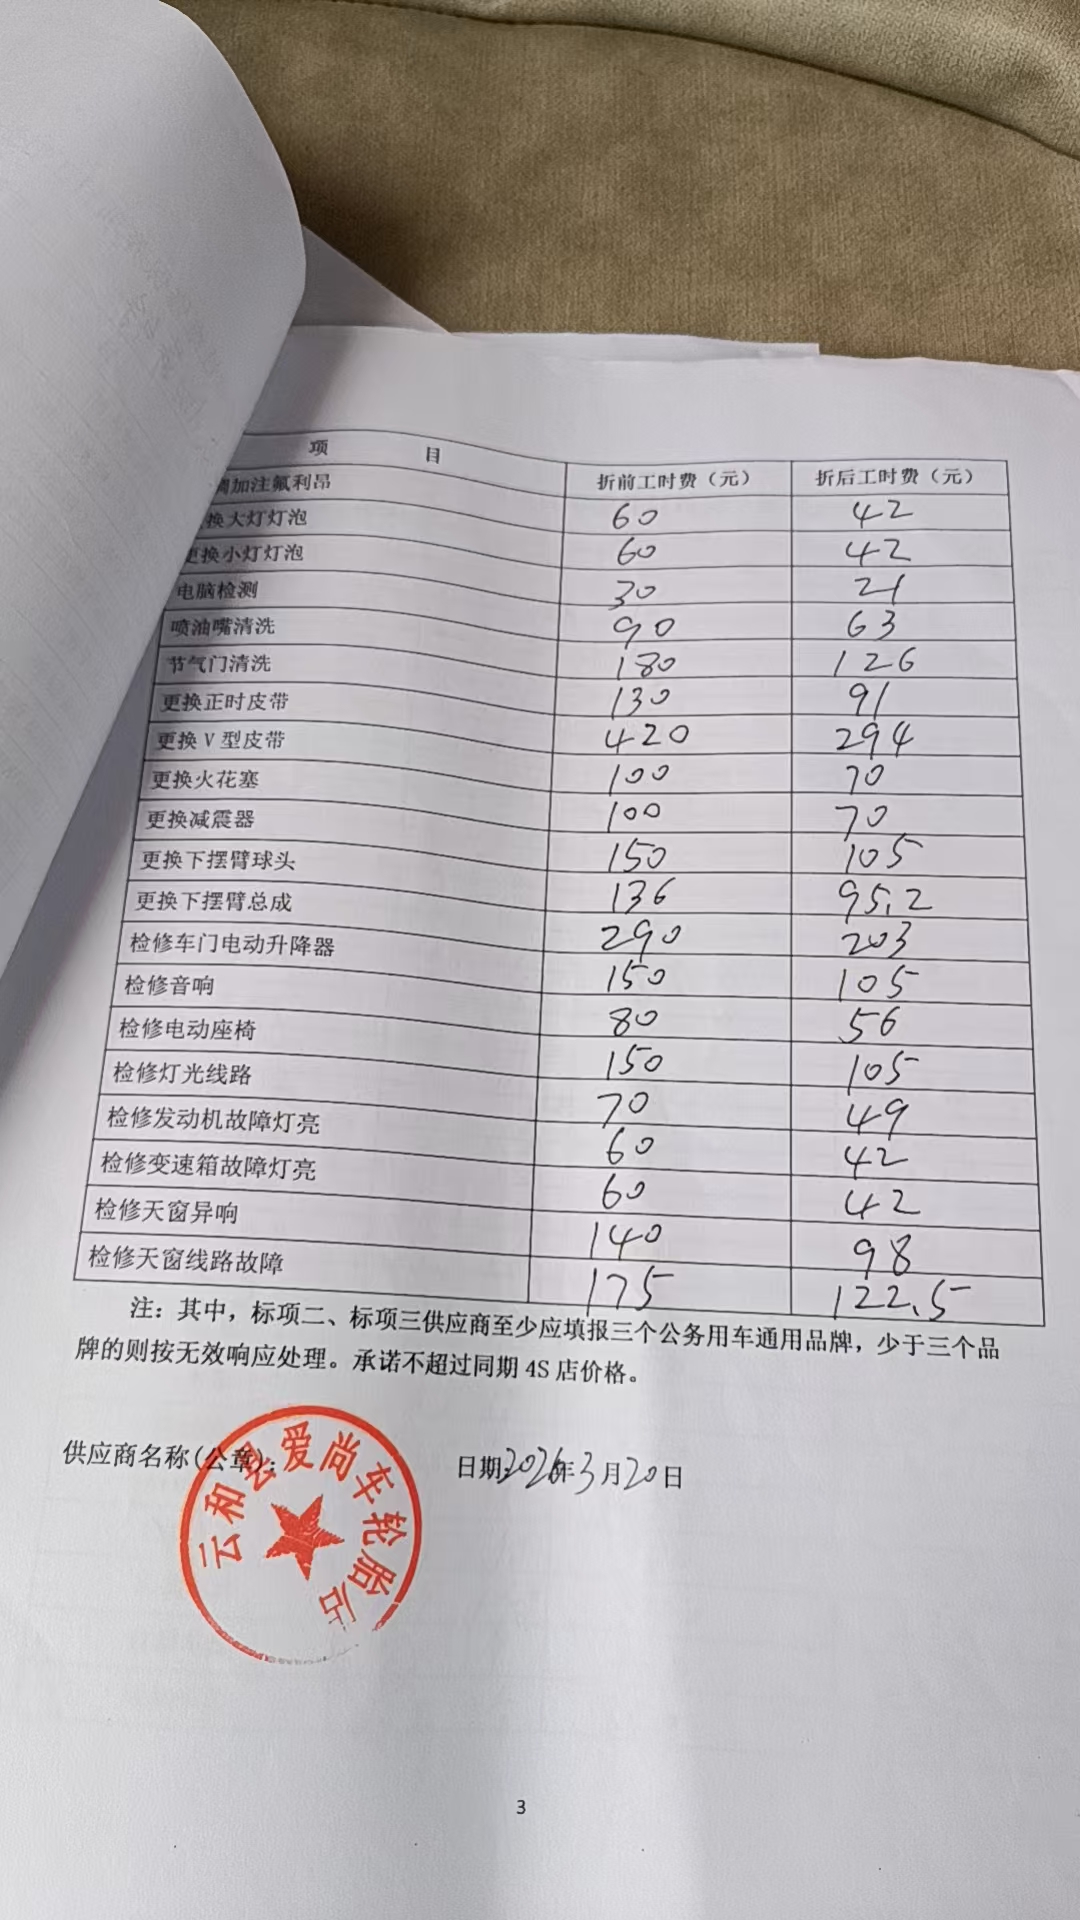 项 目 折前工时费（元） 折后工时费（元）
调加注氟利昂 60 42
换大灯灯泡 60 42
更换小灯灯泡 30 21
电脑检测 90 63
喷油嘴清洗 180 126
节气门清洗 130 91
更换正时皮带 420 294
更换 V 型皮带 100 70
更换火花塞 100 70
更换减震器 150 105
更换下摆臂球头 136 95.2
更换下摆臂总成 290 203
检修车门电动升降器 150 105
检修音响 80 56
检修电动座椅 150 105
检修灯光线路 70 49
检修发动机故障灯亮 60 42
检修变速箱故障灯亮 60 42
检修天窗异响 140 98
检修天窗线路故障 175 122.5
注：其中，标项二、标项三供应商至少应填报三个公务用车通用品牌，少于三个品
牌的则按无效响应处理。承诺不超过同期 4S 店价格。
供应商名称(公章)： 日期:2026年3月20日
云和县爱尚车轮胎店
3